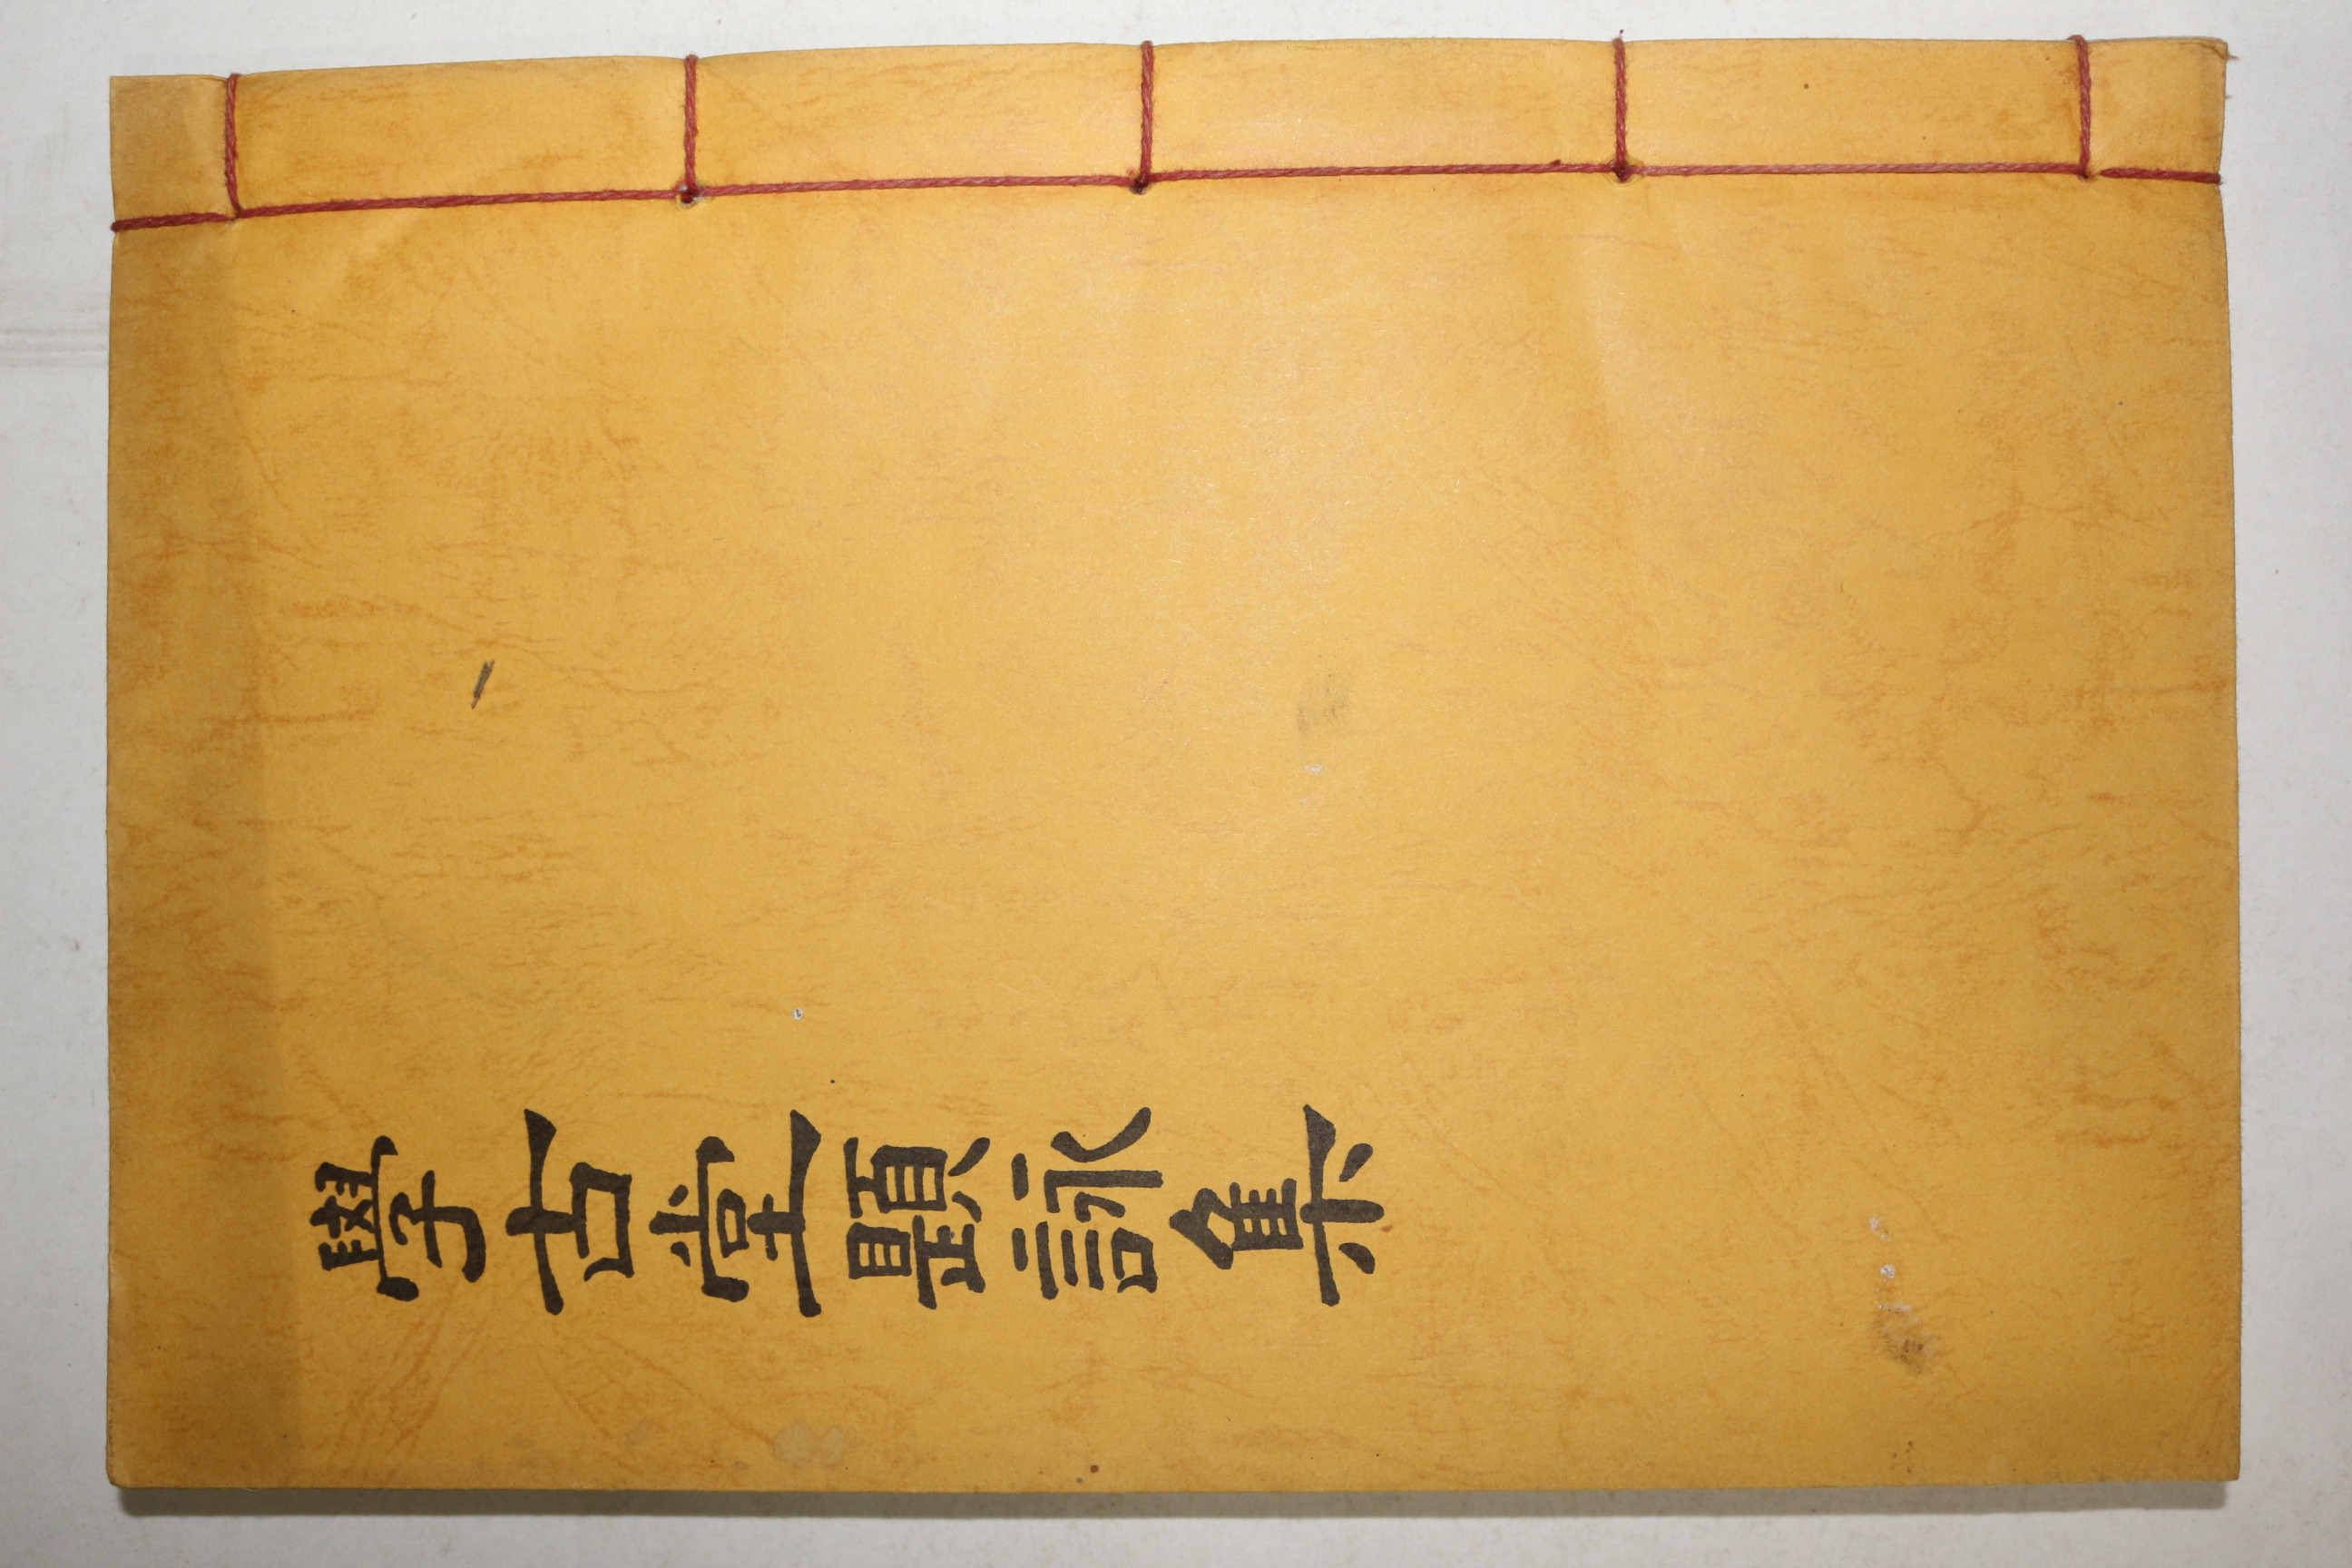 學古堂題詠集